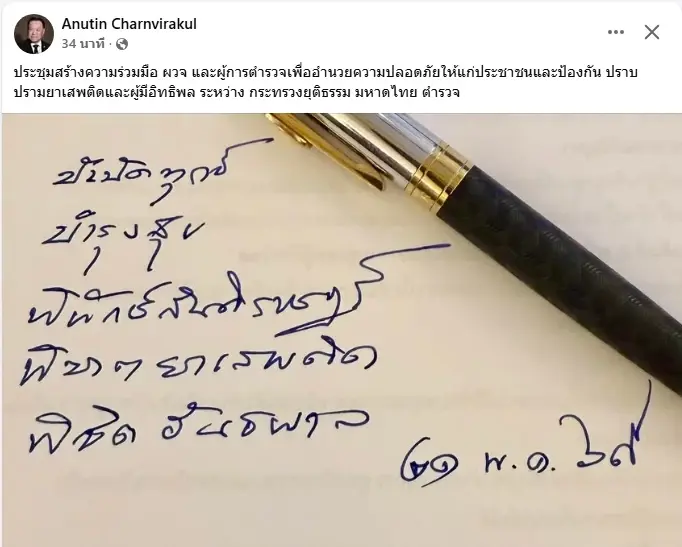 Anutin Charnvirakul
34 นาที ·
ประชุมสร้างความร่วมมือ ผวจ และผู้การตำรวจเพื่ออำนวยความปลอดภัยให้แก่ประชาชนและป้องกัน ปราบ
ปรามยาเสพติดและผู้มีอิทธิพล ระหว่าง กระทรวงยุติธรรม มหาดไทย ตำรวจ
บำบัดทุกข์
บำรุงสุข
พิทักษ์สันติราษฎร์
พิฆาต ยาเสพติด
พิชิต อันธพาล
๒๑ พ.ค. ๖๙